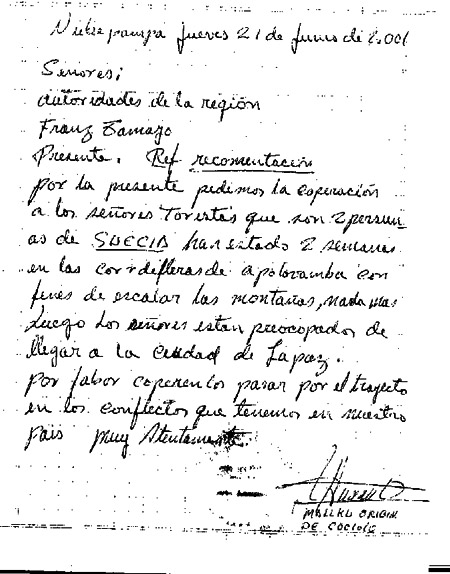 jueves 21 de Junio de 2.001
Señores;
autoridades de la región
Franz Tamayo
Presente. Ref recomentación
por la presente pedimos la coperación
a los señores Torestas que son 2 person
as de SUECIA han estado 2 semanas
en las corrdilleras de apolovamba con
fines de escalar las montañas, nada mas
Luego los señores estan preocopados de
llegar a la Ciudad de Lapaz.
por fabor coperenlos pasar por el trayecto
en los conflectos que tenemos en nuestro
pais muy Atentamente.
MALLKU ORIGIN
DE